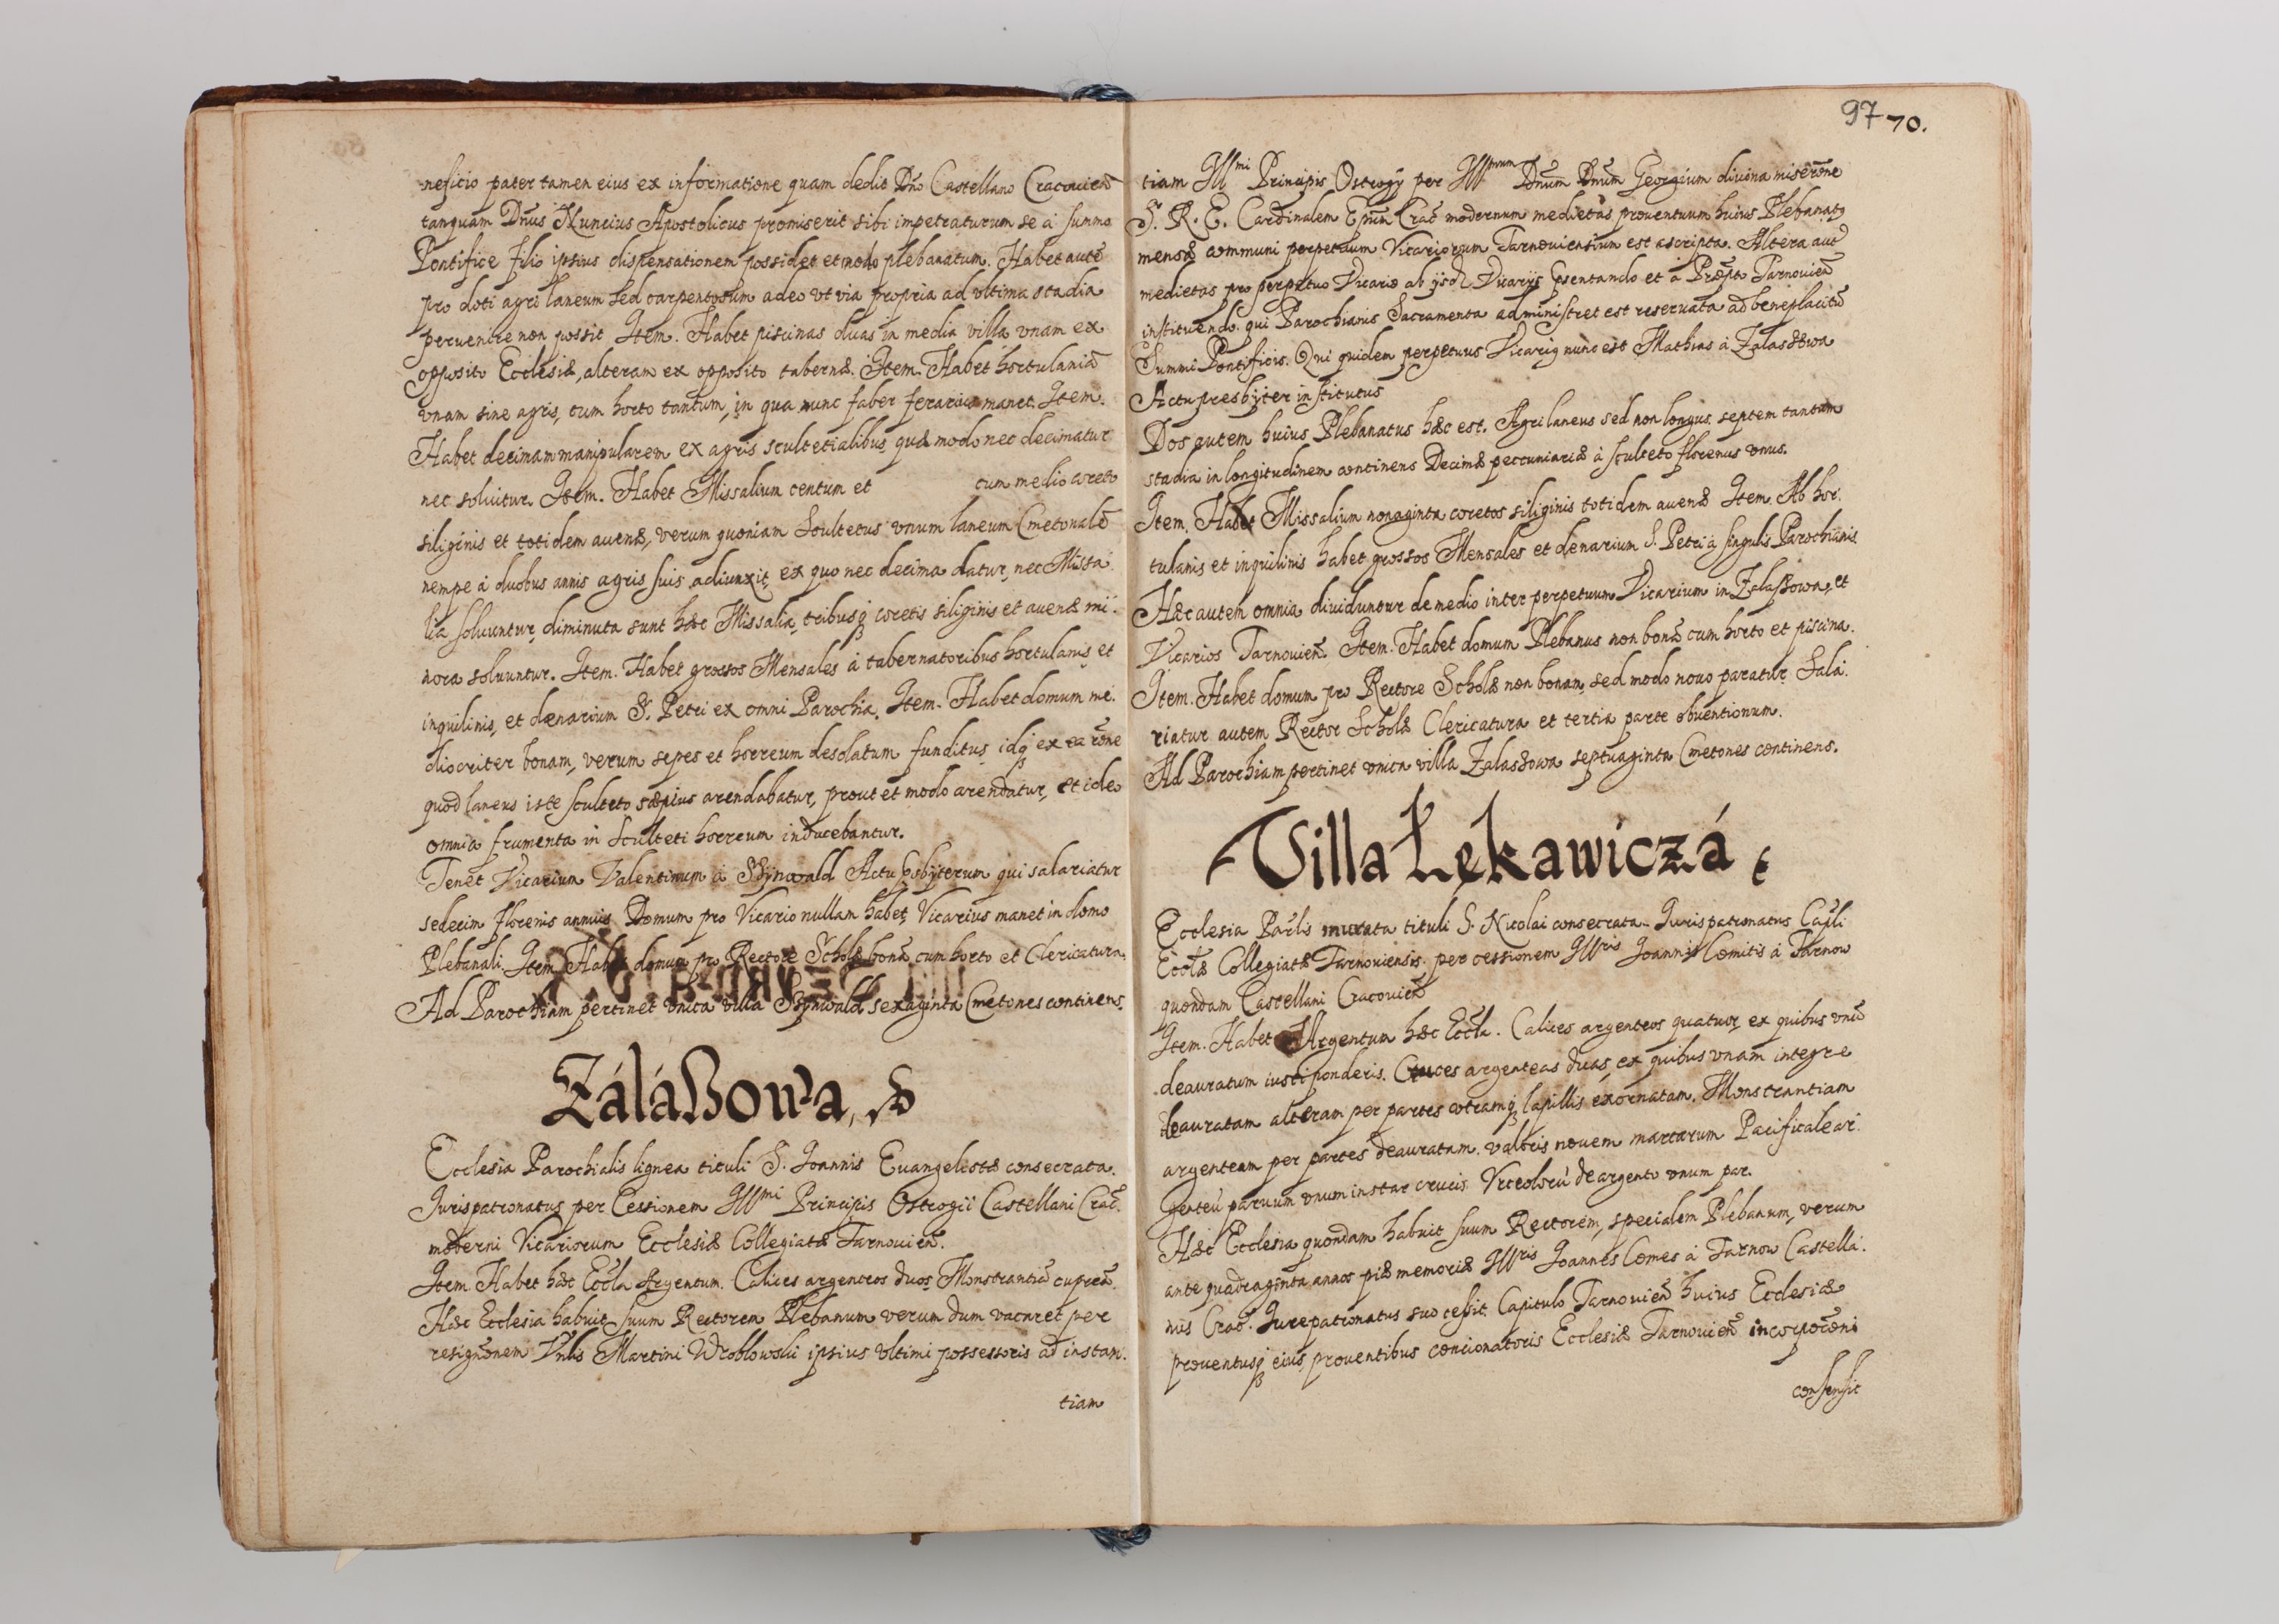 neficio pater tamen eius ex informatione quam dedit Dño Castellano Cracouieñ
tanquam Dñus Nuncius Apostolicus promiserit sibi impetraturum se à summo
Pontifice filio ipsius dispensationem possidet et modo plebanatum. Habet autē
pro doti agri laneum sed carpentosum adeo vt via propria ad vltima stadia
peruenire non possit Item. Habet piscinas duas in media villa vnam ex
opposito Ecclesiæ, alteram ex opposito tabernæ. Item. Habet hortulaniā
vnam sine agris, cum horto tantum, in qua nunc faber ferarius manet. Item.
Habet decimam manipularem ex agris scultetialibus quæ modo nec decimatur
nec soluitur. Item. Habet Missalium centum et cum medio coreto
siliginis et totidem auenæ, verum quoniam Scultetus vnum laneum Cmetonalē
nempe à duobus annis agris suis adiunxit, ex quo nec decima datur, nec Missa
lia soluuntur, diminuta sunt hæc Missalia, tribusq coretis siliginis et auenæ mi:
nora soluuntur. Item. Habet grossos Mensales à tabernatoribus hortulanis, et
inquilinis, et denarium S. Petri ex omni Parochia. Item. Habet domum me:
diocriter bonam, verum sepes et horreum desolatum funditus, idq ex ea rōne
quod laneus iste sculteto sæpius arendabatur, prout et modo arendatur, et ideo
omnia frumenta in Sculteti horreum inducebantur.
Tenet Vicarium Valentinum à Szynwald Actu Psbyterum qui salariatur
sedecim florenis annuis. Domum pro Vicario nullam habet, Vicarius manet in domo
Plebanali. Item. Habet domum pro Rectore Scholæ bonā cum horto et Clericatura.
Ad Parochiam pertinet vnica villa Szynwald sexaginta Cmetones continens.
Zálászowa,
Ecclesia Parochialis lignea tituli S. Joannis Euangelistæ consecrata.
Jurispatronatus per Cessionem Illmi Principis Ostrogii Castellani Crac̃.
moderni Vicariorum Ecclesiæ Collegiatæ Tarnouieñ.
Item. Habet hæc Eccła Argentum. Calices argenteos duos, Monstrantiā cupreā.
Hæc Ecclesia habuit suum Rectorem Plebanum verum dum vacaret per
resignōnem Vnlis Martini Wroblowski ipsius vltimi possessoris ad instan:
tiam
97 70.
tiam Illmi Principis Ostrogij per Illmum Dñum Dñum Georgium diuina miserōne
S. R. E. Cardinalem Epum Crac̃ modernum medietas prouentuum huius Plebanatg
mensæ communi perpetuum Vicariorum Tarnouiensium est ascripta. Altera aut
medietas pro perpetuo Vicario ab ijsd Vicarijs Psentando et à Præpto Tarnouieñ
instituendo. qui Parochianis Sacramenta administret est reseruata ad beneplacitū
Summi Pontificis. Qui quidem perpetuus Vicarig nunc est Mathias à Zalaszowa
Actu presbyter institutus
Dos autem huius Plebanatus hæc est. Agri laneus sed non longus, septem tantum
stadia in longitudinem continens Decimæ peccuniariæ à sculteto florenus vnus.
Item. Habet Missalium nonaginta coretos siliginis totidem auenæ Item. Ab hor:
tulanis et inquilinis habet grossos Mensales et denarium S. Petri à singulis Parochianis.
Hæc autem omnia diuiduntur de medio inter perpetuum Vicarium in Zalaszowa, et
Vicarios Tarnouieñ. Item. Habet domum Plebanus non bonā cum horto et piscina.
Item. Habet domum pro Rectore Scholæ non bonam, sed modo nouo paratur. Sala:
riatur autem Rector Scholæ Clericatura et tertia parte obuentionum.
Ad Parochiam pertinet vnica villa Zalaszowa septuaginta Cmetones continens.
Villa Łękawiczá
Ecclesia Parlis murata tituli S. Nicolai consecrata. Jurispatronatus Capli
Eccłæ Collegiatæ Tarnouiensis, per cessionem Illris Joannis Comitis à Tarnow
quondam Castellani Cracouieñ
Item. Habet Argentum hæc Eccła. Calices argenteos quatuor, ex quibus vnū
deauratum iusti ponderis. Cruces argenteas duas, ex quibus vnam integre
deauratam alteram per partes vtramq lapillis exornatam. Monstrantiam
argenteam per partes deauratam. valoris nouem marcarum Pacificale ar:
genteū paruum vnum instar crucis. Vrceolorū de argento vnum par.
Hæc Ecclesia quondam habuit suum Rectorem, specialem Plebanum, verum
ante quadraginta annos piæ memoriæ Illris Joannes Comes à Tarnow Castella:
nis Crac̃. Jurepatronatus suo cessit. Capitulo Tarnouieñ huius Ecclesiæ
prouentusq eius prouentibus concionatoris Ecclesiæ Tarnouieñ incorporōni
consensit